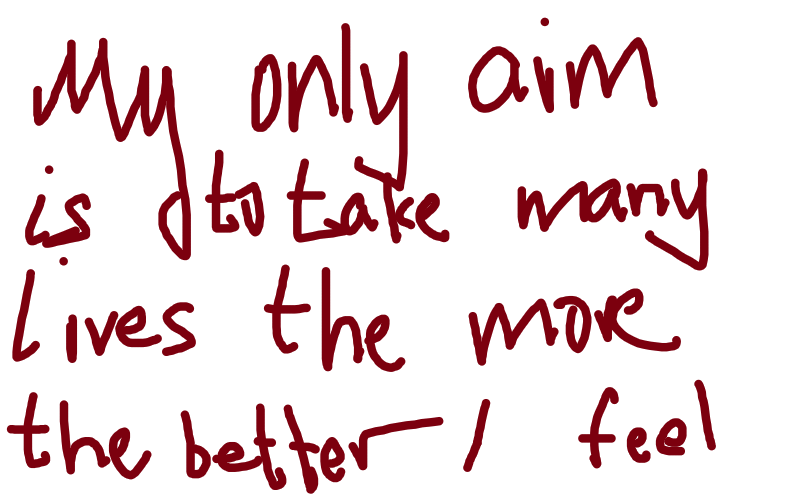 My only aim
is to take many
lives the more
the better I feel